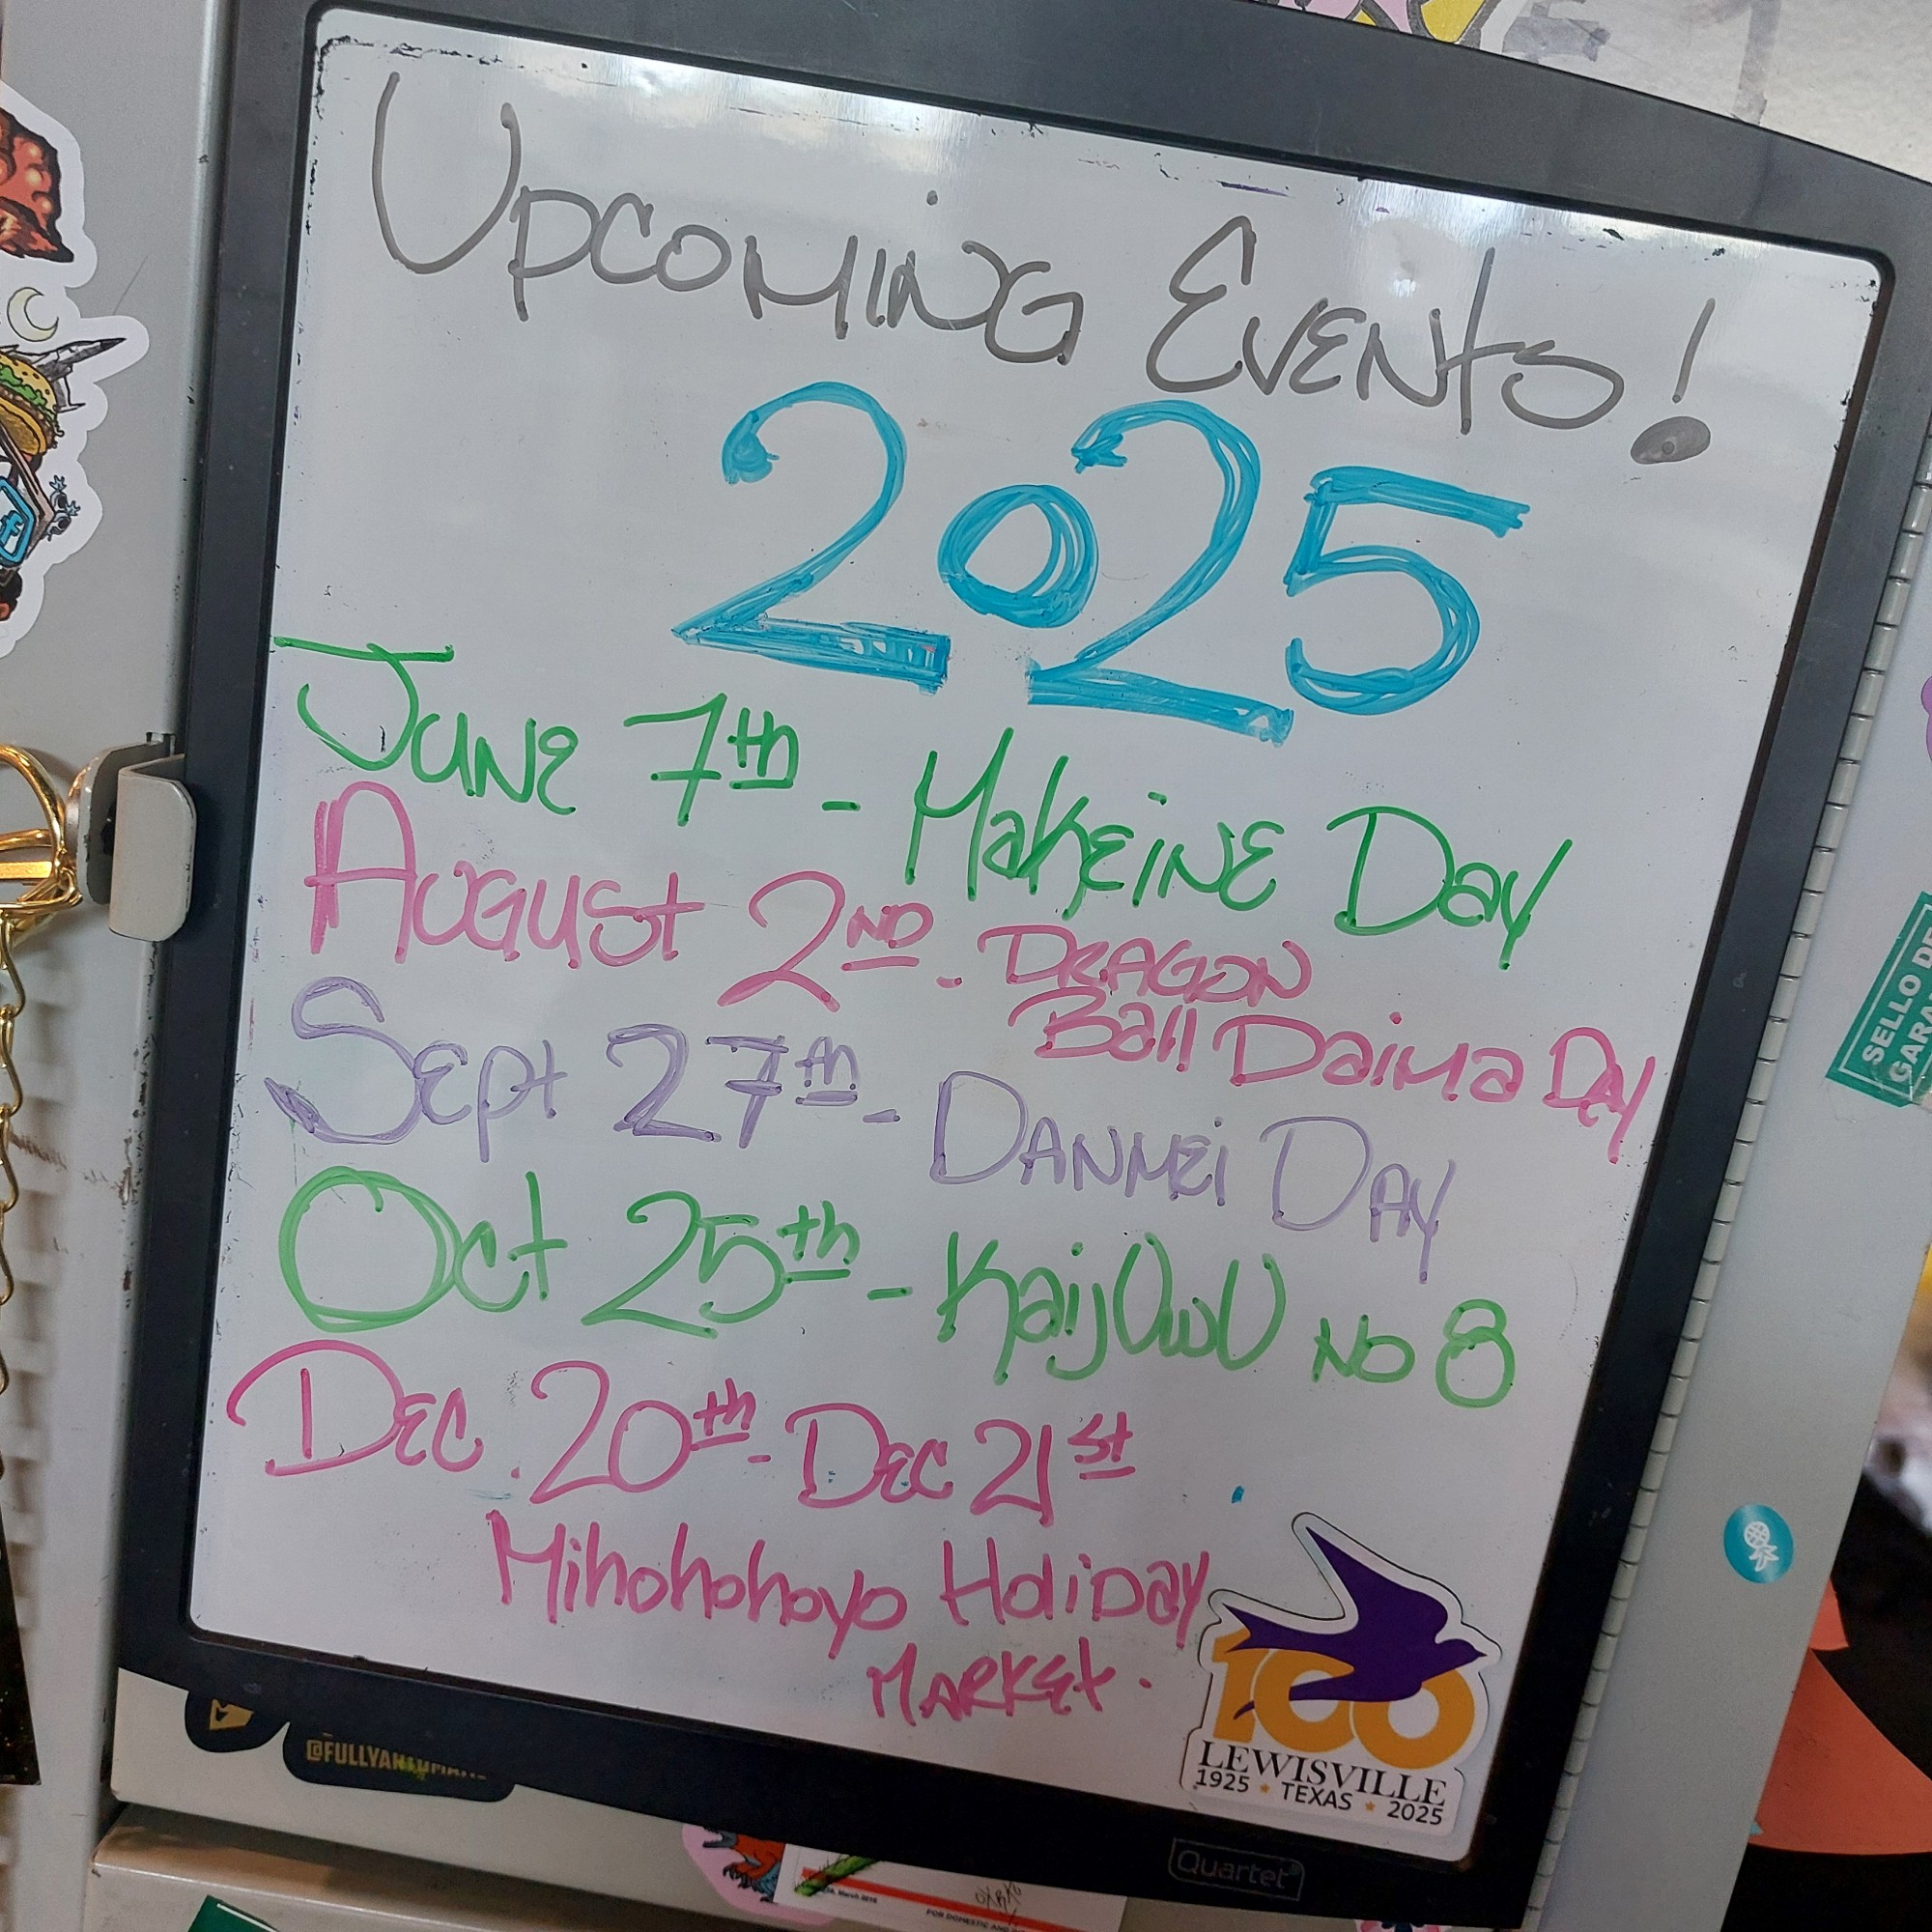 Upcoming Events!
2025
June 7th - Makeine Day
August 2nd - Dragon
Ball Daima Day
Sept 27th - Danmei Day
Oct 25th - KaijUwU No 8
Dec. 20th - Dec 21st
Mihohohoyo Holiday
Market.
100
LEWISVILLE
1925 ★ TEXAS ★ 2025
Quartet®
SELLO DE
FOR DOMESTIC AND